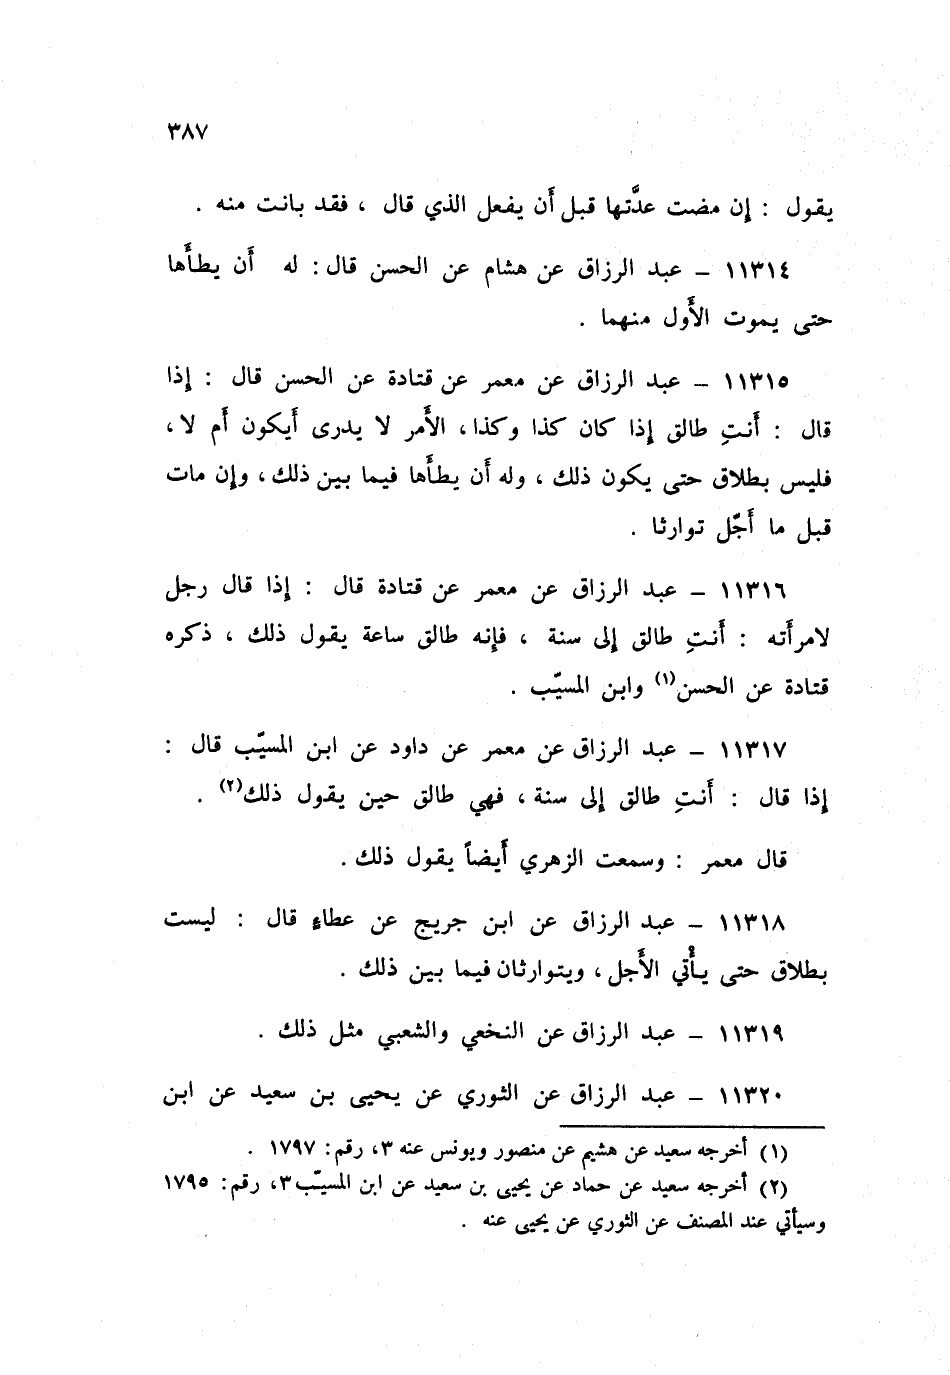 ٣٨٧
يقول : إن مضت عدَّتها قبل أَن يفعل الذي قال ، فقد بانت منه .
١١٣١٤ – عبد الرزاق عن هشام عن الحسن قال : له أَن يطأَها
حتى يموت الأَول منهما .
١١٣١٥ – عبد الرزاق عن معمر عن قتادة عن الحسن قال : إِذا
قال : أَنتِ طالق إِذا كان كذا وكذا ، الأَمر لا يدرى أَيكون أَم لا ،
فليس بطلاق حتى يكون ذلك ، وله أَن يطأَها فيما بين ذلك ، وإِن مات
قبل ما أَجّل توارثا .
١١٣١٦ – عبد الرزاق عن معمر عن قتادة قال : إِذا قال رجل
لامرأَته : أَنتِ طالق إِلى سنة ، فإِنه طالق ساعة يقول ذلك ، ذكره
قتادة عن الحسن(١) وابن المسيّب .
١١٣١٧ – عبد الرزاق عن معمر عن داود عن ابن المسيّب قال :
إِذا قال : أَنتِ طالق إِلى سنة ، فهي طالق حين يقول ذلك(٢) .
قال معمر : وسمعت الزهري أَيضاً يقول ذلك .
١١٣١٨ – عبد الرزاق عن ابن جريج عن عطاءٍ قال : ليست
بطلاق حتى يأْتي الأَجل ، ويتوارثان فيما بين ذلك .
١١٣١٩ – عبد الرزاق عن النخعي والشعبي مثل ذلك .
١١٣٢٠ – عبد الرزاق عن الثوري عن يحيى بن سعيد عن ابن
(١) أخرجه سعيد عن هشيم عن منصور ويونس عنه ٣، رقم: ١٧٩٧ .
(٢) أخرجه سعيد عن حماد عن يحيى بن سعيد عن ابن المسيّب ٣، رقم: ١٧٩٥
وسيأتي عند المصنف عن الثوري عن يحيى عنه .